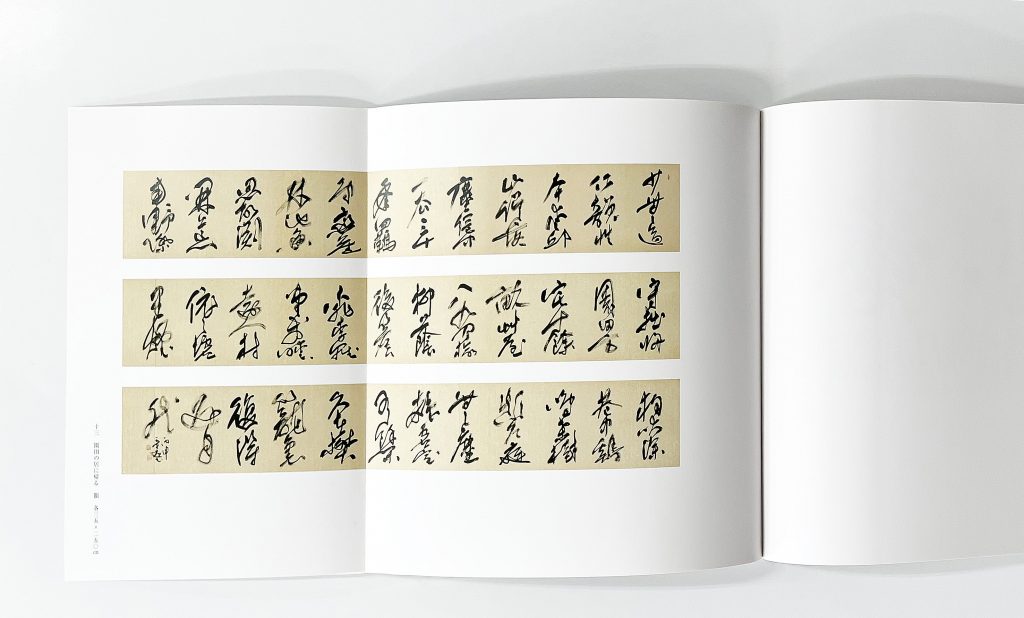 少無適
俗韻性
本愛邱
山誤落
塵
去三十
年羈鳥
戀舊
林池魚
思故淵
開荒
南野際
守拙歸
園田
宅十餘
畝草屋
八九間榆
柳蔭
後簷
桃李羅
堂前曖
遠人村
依々墟
里煙
狗吠深
巷中鷄
鳴桑樹
顛戶庭
無塵
雜虛室
有餘
久在樊
籠裏
復得
返自
然
十三 園田の居に帰る 額 各三五×二五〇㎝